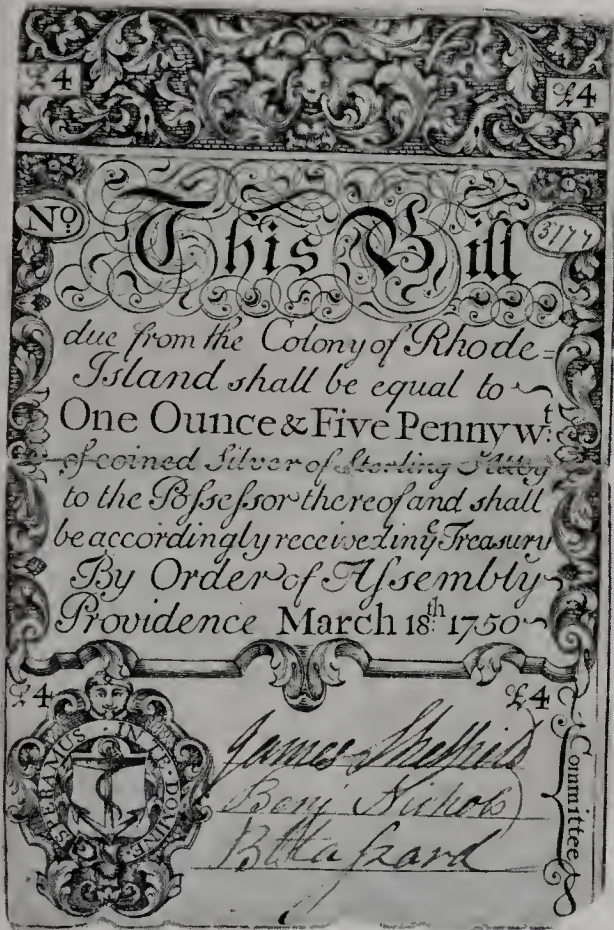 £4 £4
Nº This Bill 3177
due from the Colony of Rhode=
Island shall be equal to
One Ounce & Five Pennywt:
of coined Silver of Sterling
to the Possessor thereof and shall
be accordingly received in ye Treasury
By Order of Assembly
Providence March 18th: 1750
£4 £4
SPERAMUS · IN · TE · DOMINE
James Sheffield
Benj Nichols
B Hazard
Committee